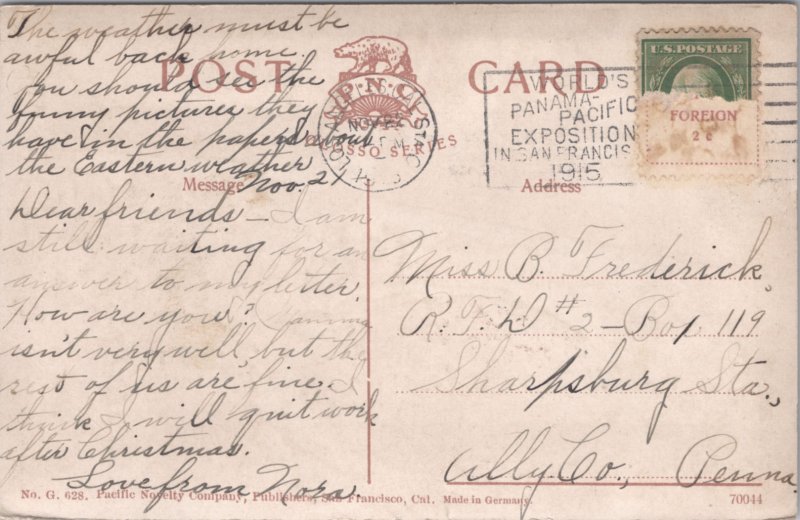 The weather must be
awful back home.
You should see the
funny pictures they
have in the papers about
the Eastern weather
Nov. 21
POST CARD
P.N.C.
SSO SERIES
Message
Address
NOV 22
WORLD'S
PANAMA-
PACIFIC
EXPOSITION
IN SAN FRANCIS
1915
U.S. POSTAGE
FOREIGN
2¢
Dear friends – I am
still waiting for an
answer to my letter.
How are you? Mamma
isn't very well, but the
rest of us are fine. I
think I will quit work
after Christmas.
Love from Nora.
Miss B. Frederick,
R.F.D #2 – Box 119
Sharpsburg Sta.,
Ally Co., Penna.
No. G. 628. Pacific Novelty Company, Publishers, San Francisco, Cal. Made in Germany.
70044